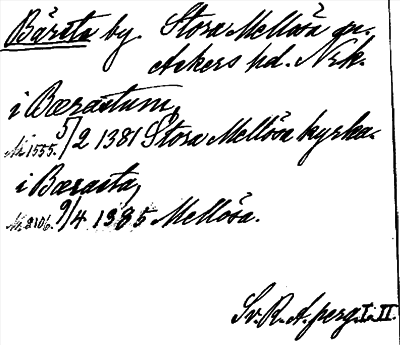 Bärsta by. Stora Mellösa sn.
Askers hd. Nrk.
i Bærastum,
Nr. 1555. 5/2 1381 Stora Mellösa kyrka.
i Bærasta,
Nr. 2106. 9/4 1385 Mellösa.
Sv. R. A. perg. I. II.